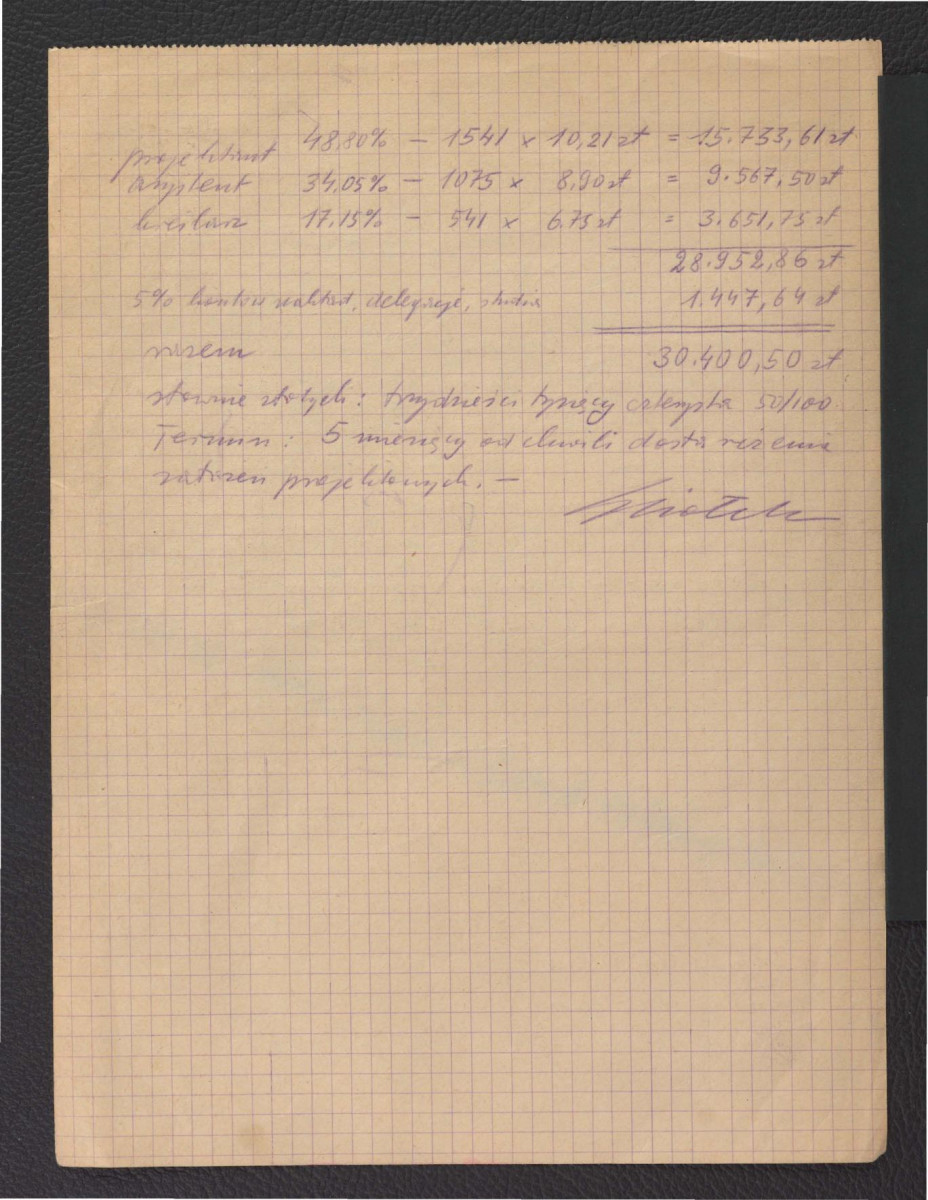 projektant 48,80% — 1541 x 10,21 zł = 15.733,61 zł
asystent 34,05% — 1075 x 8,90 zł = 9.567,50 zł
kreślarz 17.15% — 541 x 6.75 zł = 3.651,75 zł
28.952,86 zł
5% delegacje, studia 1.447,64 zł
razem 30.400,50 zł
słownie złotych: trzydzieści tysięcy czterysta 50/100
Termin: 5 miesięcy od chwili dostarczenia
założeń projektowych. —